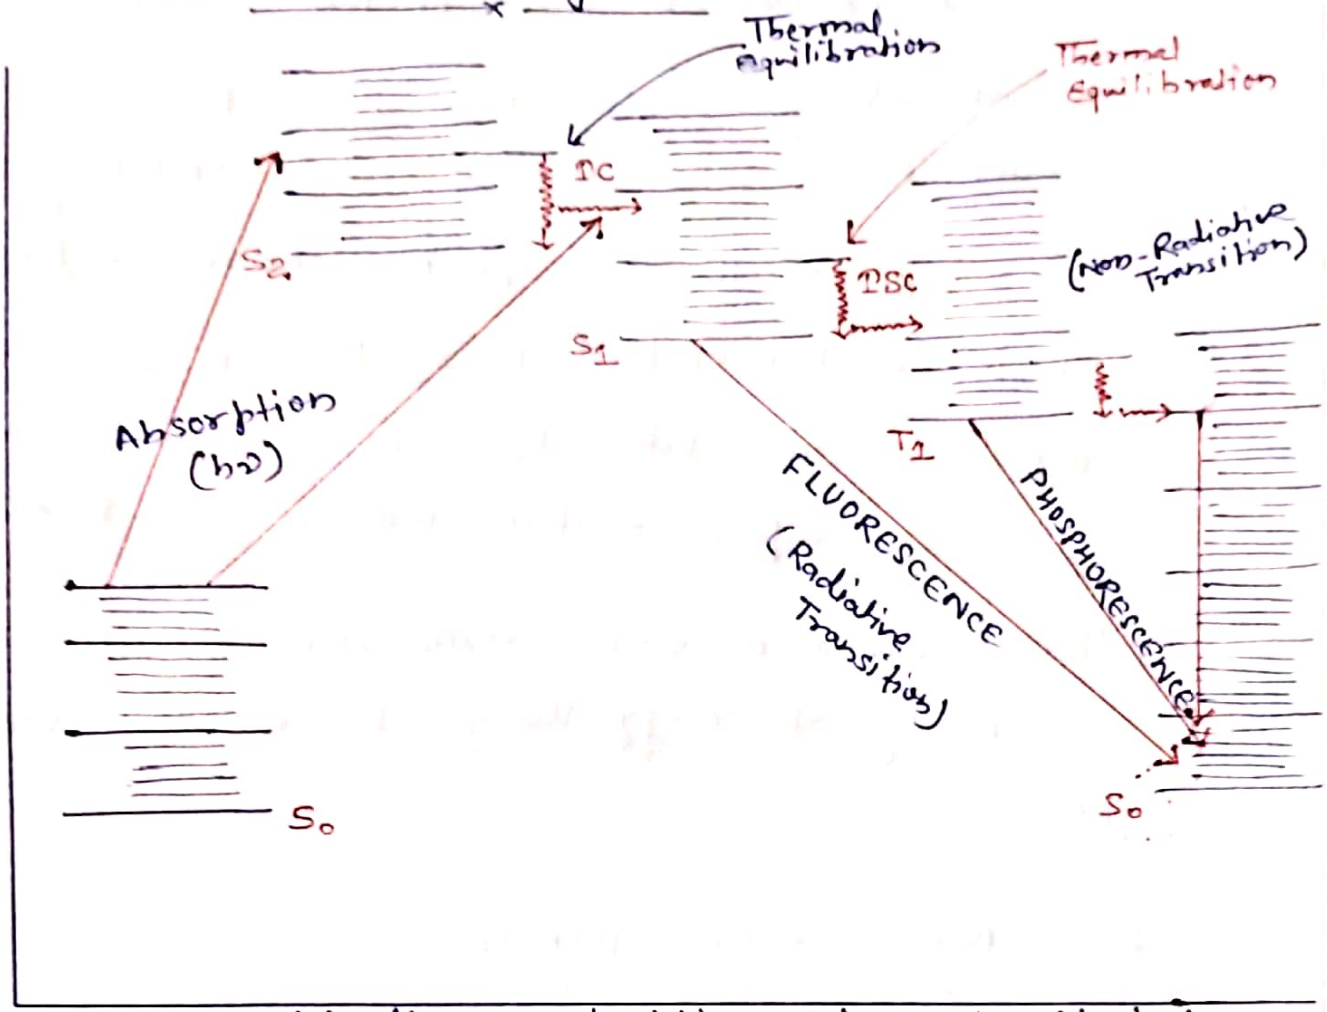 Thermal
Equilibration
Thermal
Equilibration
IC
(Non-Radiative
Transition)
S2
ISC
S1
Absorption
(hν)
T1
FLUORESCENCE
(Radiative
Transition)
PHOSPHORESCENCE
S0
S0